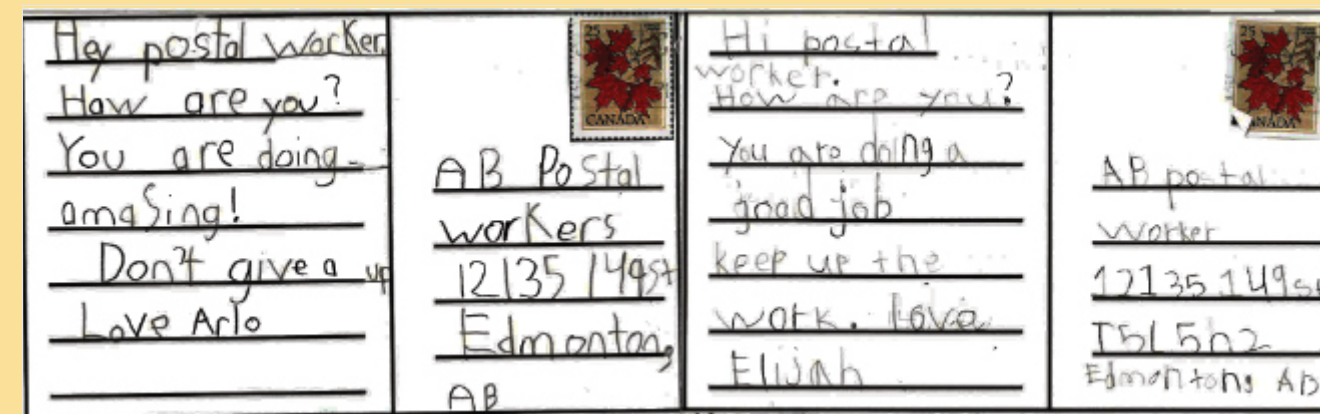 Hey postal worker.
How are you?
You are doing
amaSing!
Don't give a up
Love Arlo
25
CANADA
AB PoStal
workers
12135 149st
Edmonton,
AB
Hi postal
worker.
How are you?
You are doing a
good job
keep up the
work. Love
Elijah
25
CANADA
AB postal
worker
12135 149st
T5L5h2
Edmontons AB